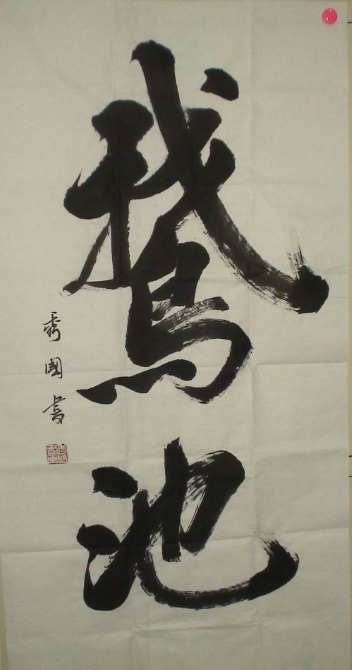 鵞池
秀國書